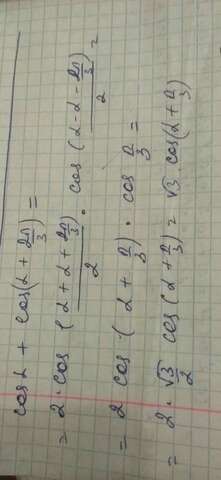 cosα + cos(α + 2π/3) =
= 2·cos (α + α + 2π/3)/2 · cos (α - α - 2π/3)/2 =
= 2 cos·(α + π/3) · cos π/3 =
= 2·√3/2 cos(α + π/3) = √3·cos(α + π/3)